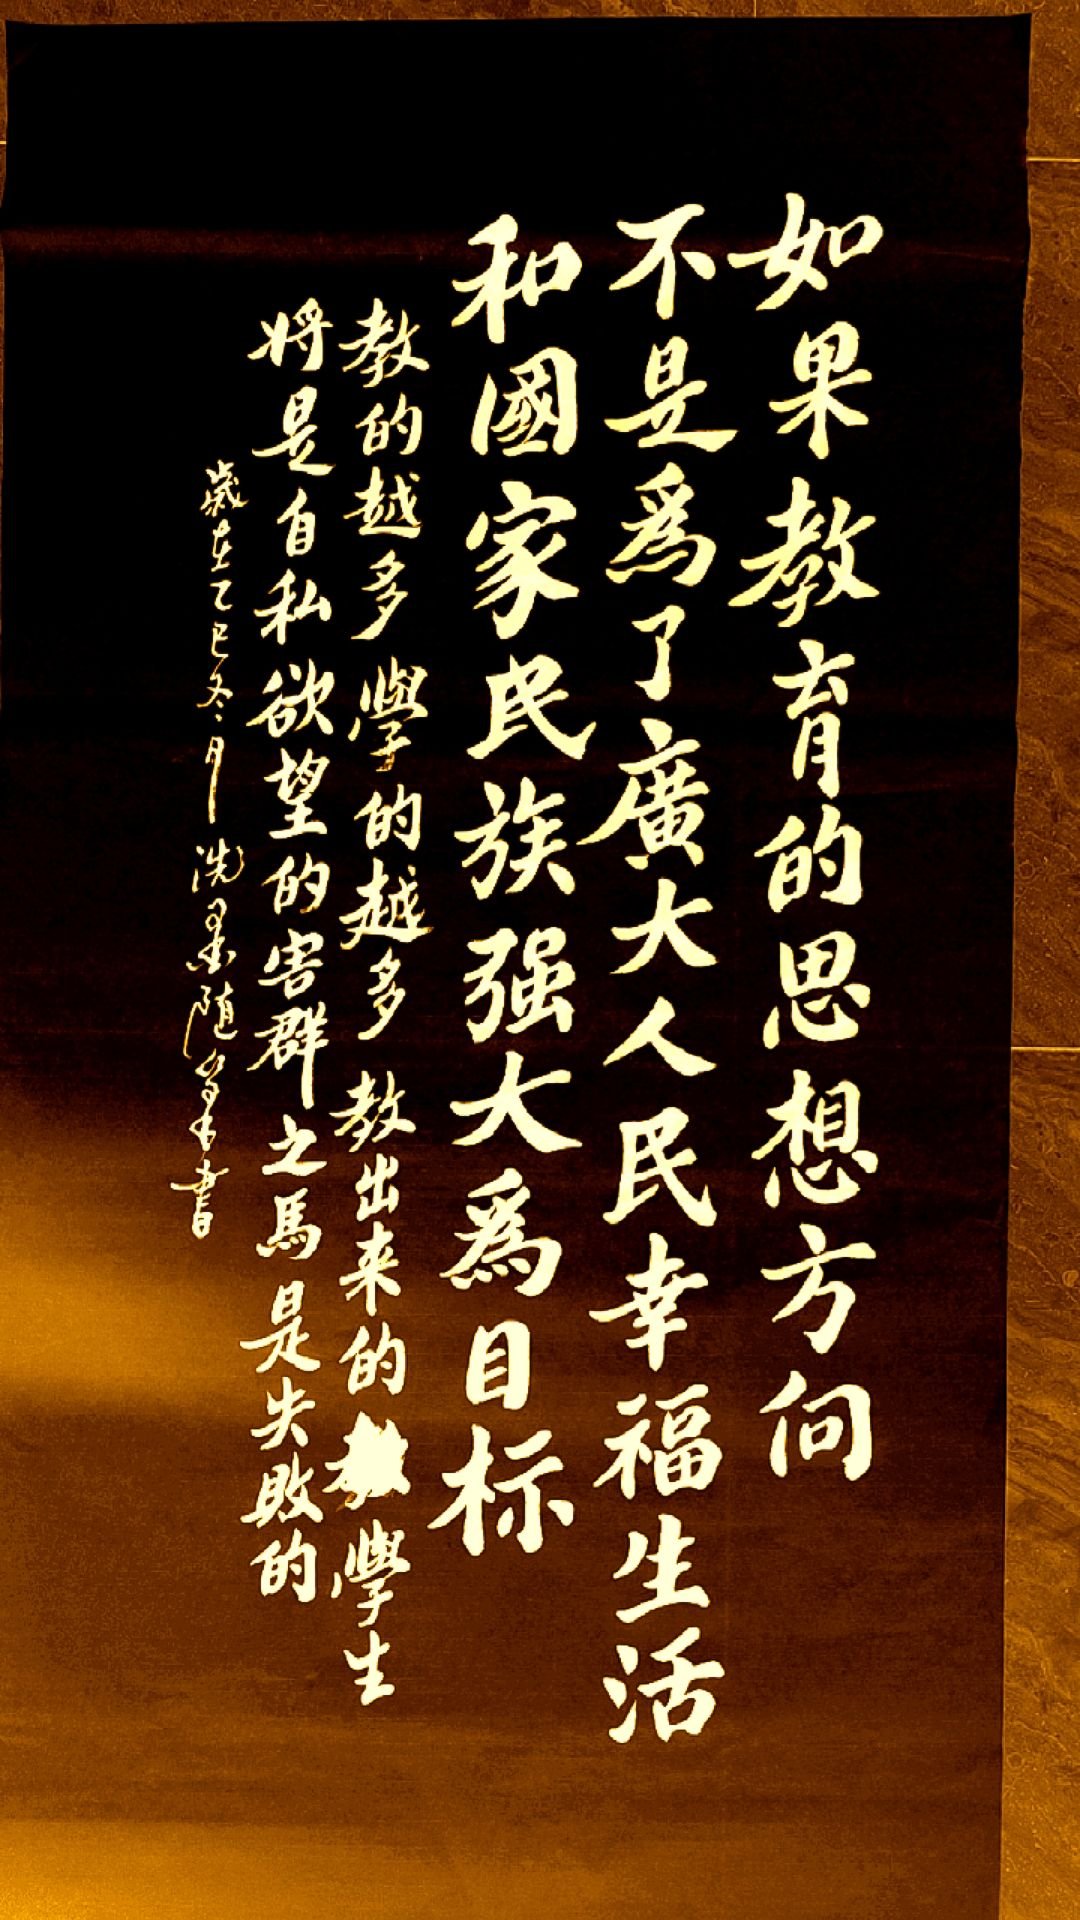 如果教育的思想方向
不是爲了廣大人民幸福生活
和國家民族强大爲目标
教的越多 學的越多 教出来的學生
將是自私欲望的害群之馬是失敗的
歲在乙巳冬月洗墨随筆書